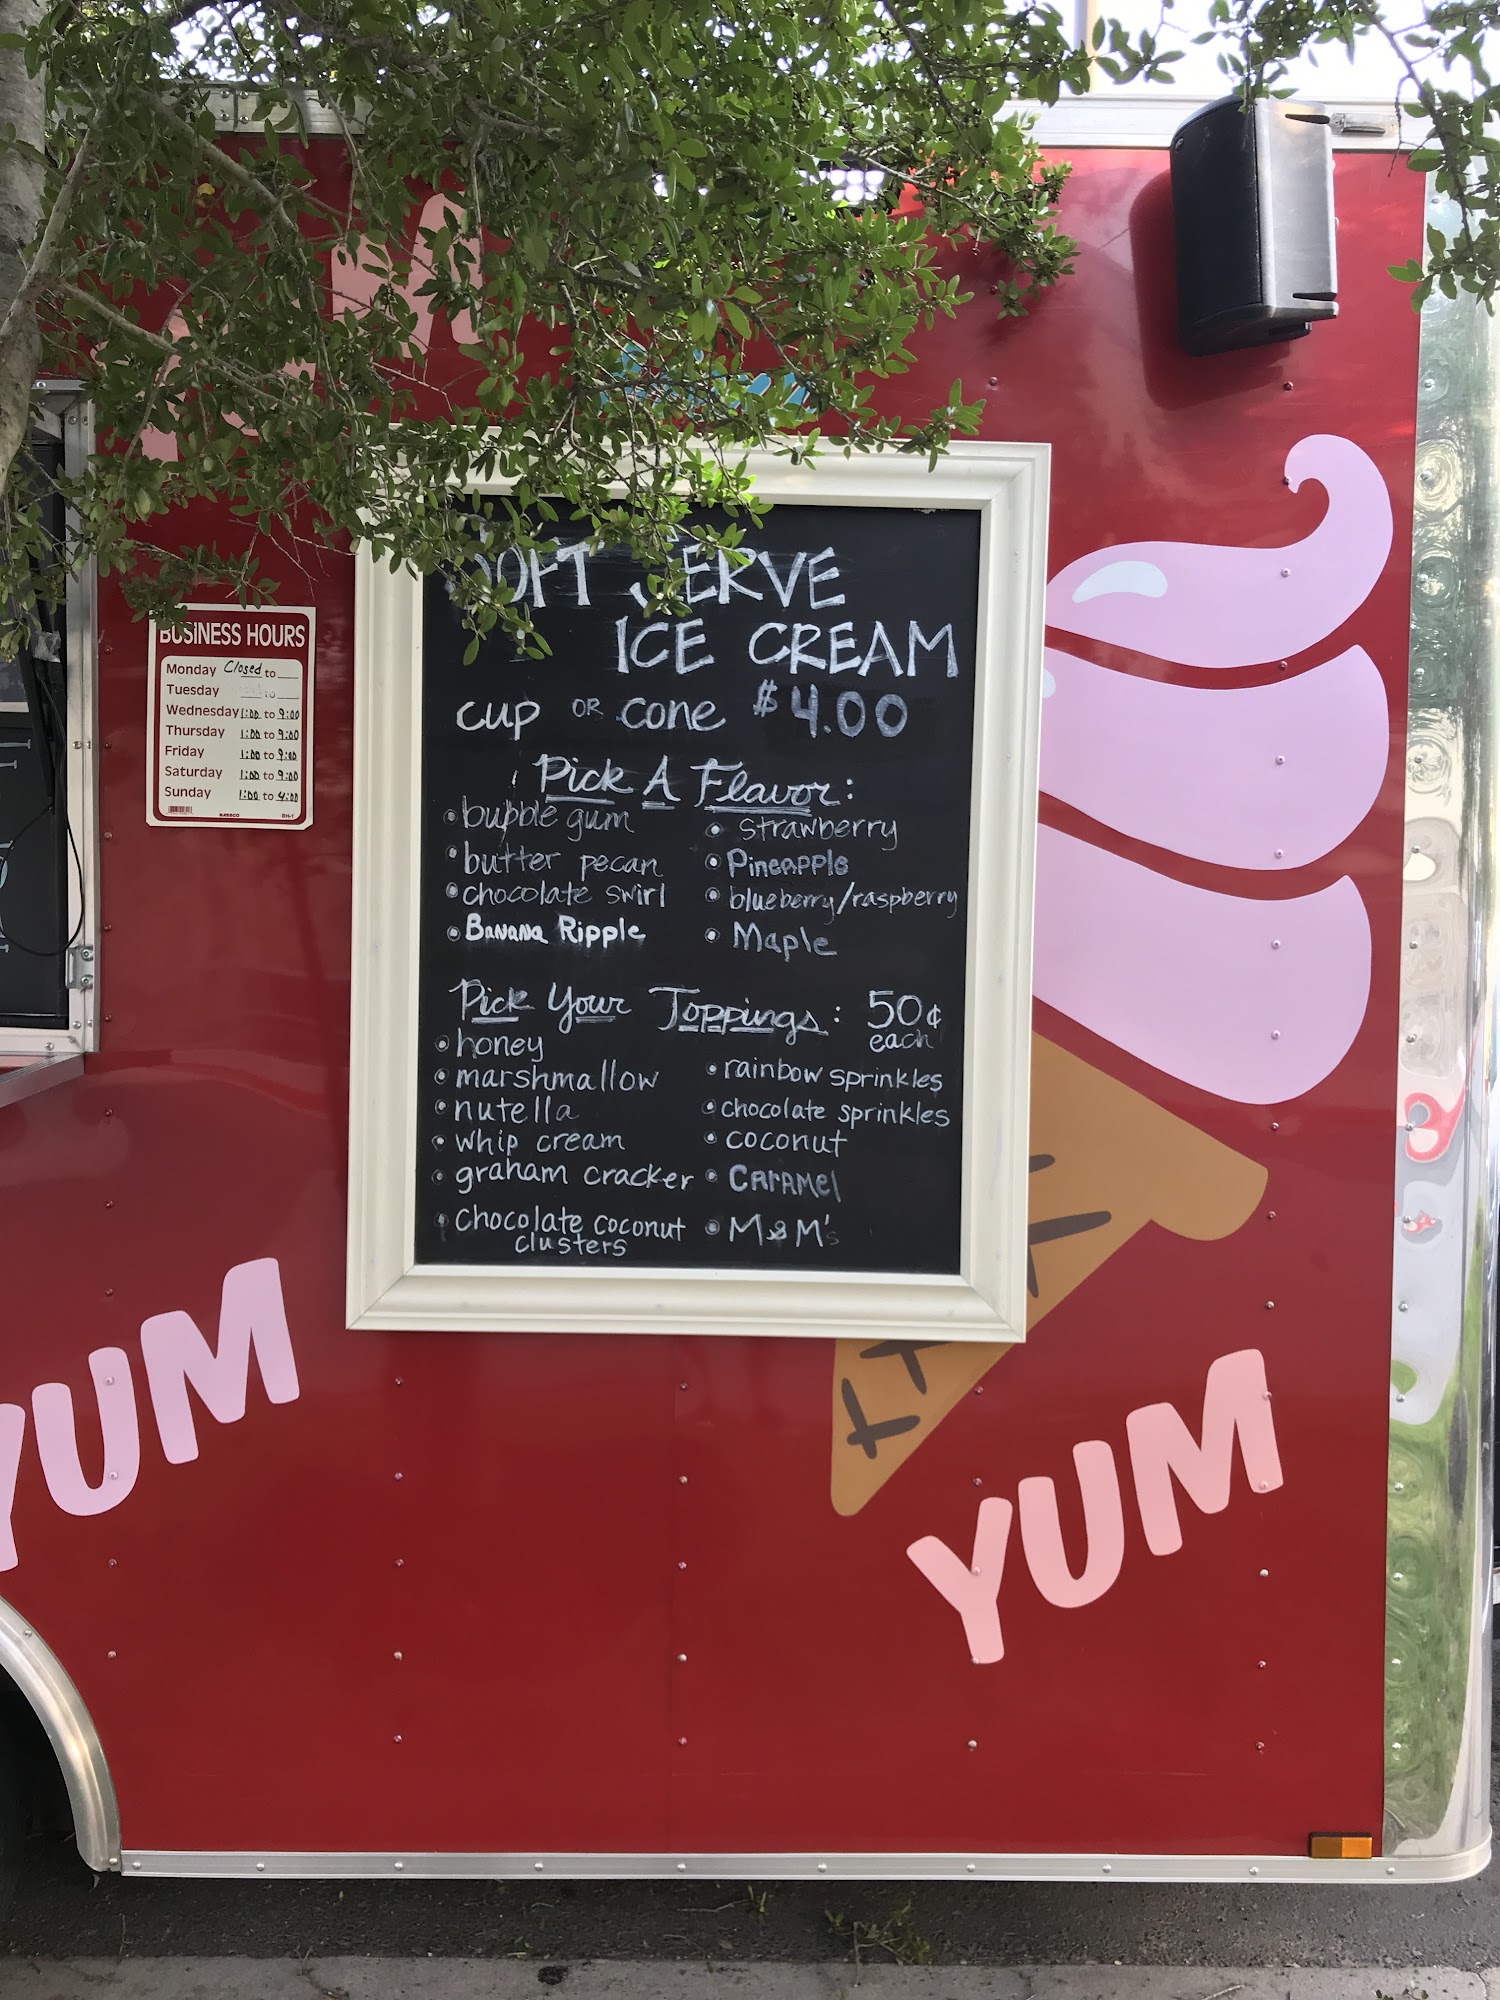 BUSINESS HOURS
Monday Closed to
Tuesday to
Wednesday 1:00 to 9:00
Thursday 1:00 to 9:00
Friday 1:00 to 9:00
Saturday 1:00 to 9:00
Sunday 1:00 to 4:00
SOFT SERVE
ICE CREAM
cup OR cone $4.00
Pick A Flavor:
• bubble gum
• butter pecan
• chocolate swirl
• Banana Ripple
• strawberry
• Pineapple
• blueberry/raspberry
• Maple
Pick Your Toppings: 50¢
each
• honey
• marshmallow
• nutella
• whip cream
• graham cracker
• chocolate coconut
clusters
• rainbow sprinkles
• chocolate sprinkles
• coconut
• CArAMel
• M&M's
YUM
YUM